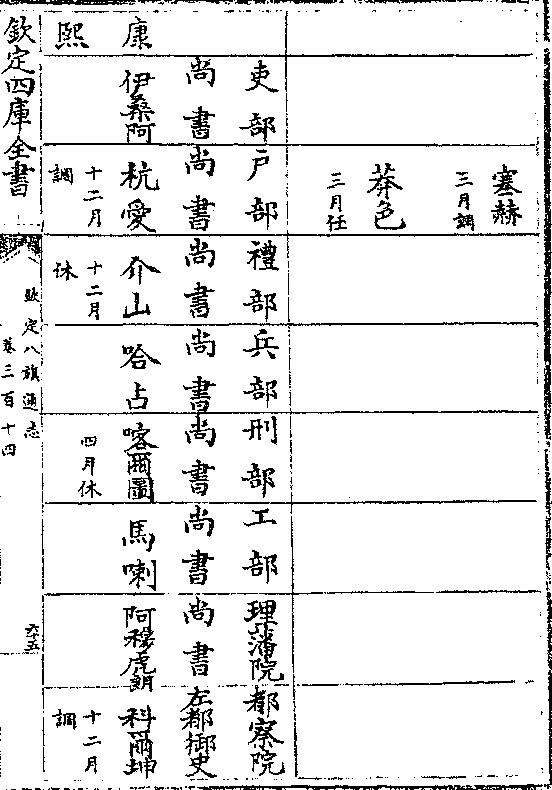 塞赫
三月調
莽色
三月任
吏部 戶部 禮部 兵部 刑部 工部 理藩院 都察院
尚書 尚書 尚書 尚書 尚書 尚書 尚書 左都御史
康 伊桑阿 杭愛 介山 哈占 喀爾圖 馬喇 阿穆虎朗 科爾坤
十二月 十二月 四月休 十二月
熙 調 休 調
欽定四庫全書
欽定八旗通志
卷三百十四
六十五